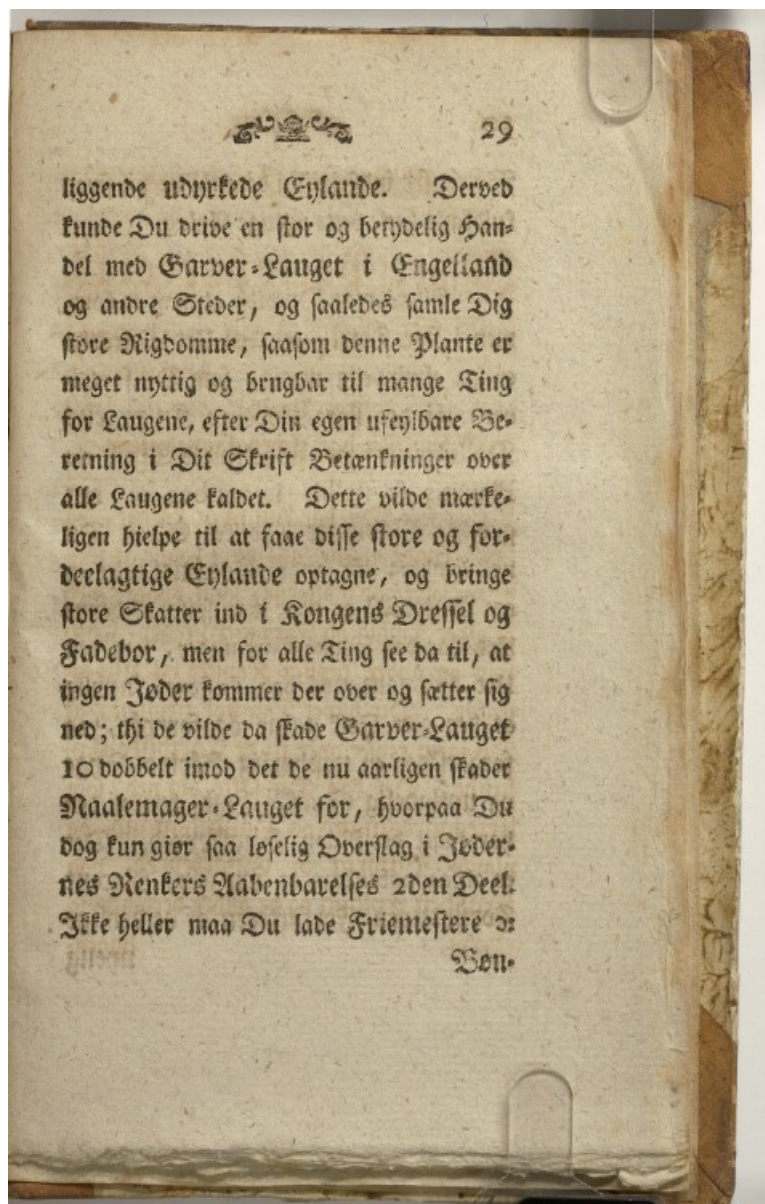 29
liggende udyrkede Eylande. Derved
kunde Du drive en stor og betydelig Han-
del med Garver-Lauget i Engelland
og andre Steder, og saaledes samle Dig
store Rigdomme, saasom denne Plante er
meget nyttig og brugbar til mange Ting
for Laugene, efter Din egen ufeylbare Be-
retning i Dit Skrift Betænkninger over
alle Laugene kaldet. Dette vilde mærke-
ligen hielpe til at faae disse store og for-
deelagtige Eylande optagne, og bringe
store Skatter ind i Kongens Dressel og
Fadebor, men for alle Ting see da til, at
ingen Jøder kommer der over og sætter sig
ned; thi de vilde da skade Garver-Lauget
10 dobbelt imod det de nu aarligen skader
Naalemager-Lauget for, hvorpaa Du
dog kun giør saa løselig Overslag i Jøder-
nes Renkers Aabenbarelses 2den Deel.
Ikke heller maa Du lade Friemestere ɔ:
Bøn-